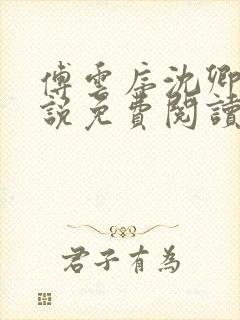 傅雲卮沈卿
說免費閱讀
君子有為